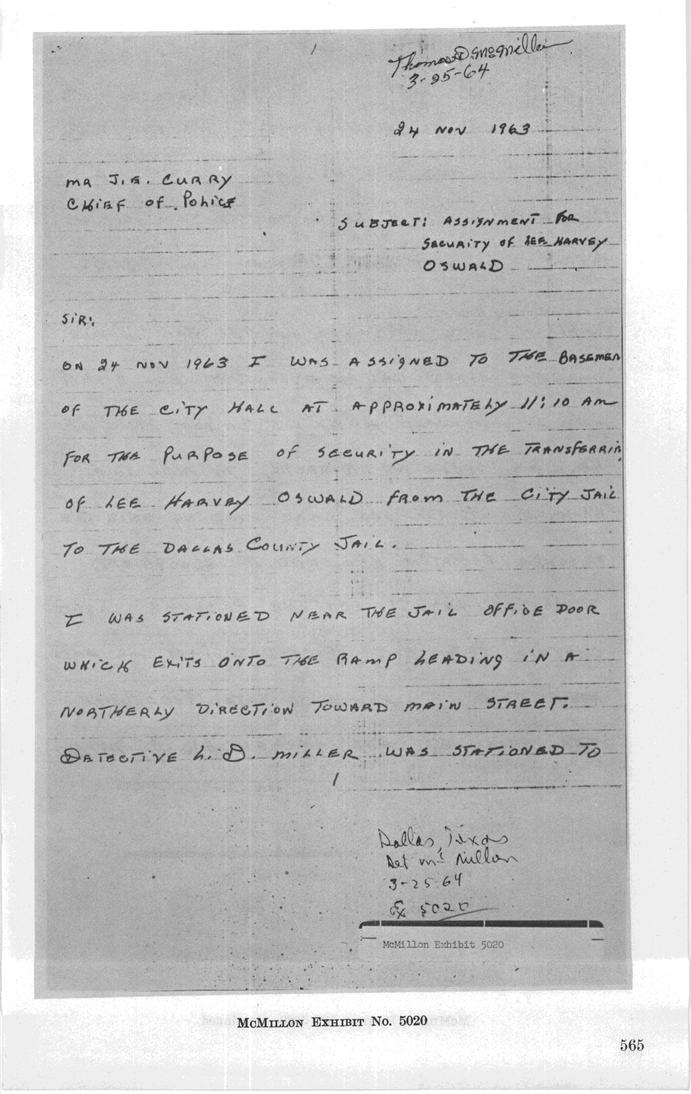 1
Thomas D. McMillon
3-25-64
24 NOV 1963
MR J.E. CURRY
CHIEF OF POLICE
SUBJECT: ASSIGNMENT FOR
SECURITY OF LEE HARVEY
OSWALD
SIR:
ON 24 NOV 1963 I WAS ASSIGNED TO THE BASEMEN
OF THE CITY HALL AT APPROXIMATELY 11:10 AM
FOR THE PURPOSE OF SECURITY IN THE TRANSFERRIN
OF LEE HARVEY OSWALD FROM THE CITY JAIL
TO THE DALLAS COUNTY JAIL.
I WAS STATIONED NEAR THE JAIL OFFICE DOOR
WHICH EXITS ONTO THE RAMP LEADING IN A
NORTHERLY DIRECTION TOWARD MAIN STREET.
DETECTIVE L. D. MILLER WAS STATIONED TO
1
Dallas, Texas
Det McMillon
3-25-64
Ex 5020
McMillon Exhibit 5020
MCMILLON EXHIBIT NO. 5020
565